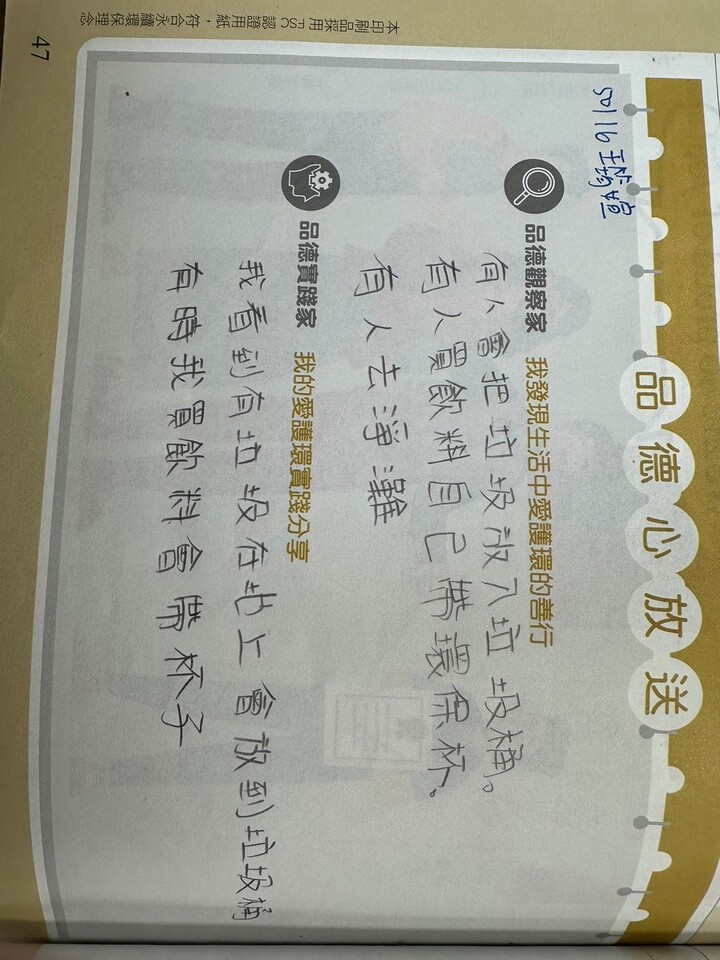 品德心放送
50116王筠媗
品德觀察家 我發現生活中愛護環的善行
有人會把垃圾放入垃圾桶。
有人買飲料自己帶環保杯。
有人去淨灘
品德實踐家 我的愛護環實踐分享
我看到有垃圾在地上會放到垃圾桶
有時我買飲料會帶杯子
47
本印刷品採用FSC認證用紙，符合永續環保理念